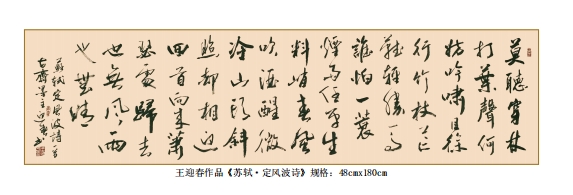 莫聽穿林
打葉聲何
妨吟嘯且徐
行竹杖芒
鞋輕勝馬
誰怕一蓑
煙雨任平生
料峭春風
吹酒醒微
冷山頭斜
照却相迎
回首向來蕭
瑟處歸去
也無風雨
也無晴
蘇軾定風波詩
王迎春書
王迎春作品《苏轼·定风波诗》规格：48cmx180cm